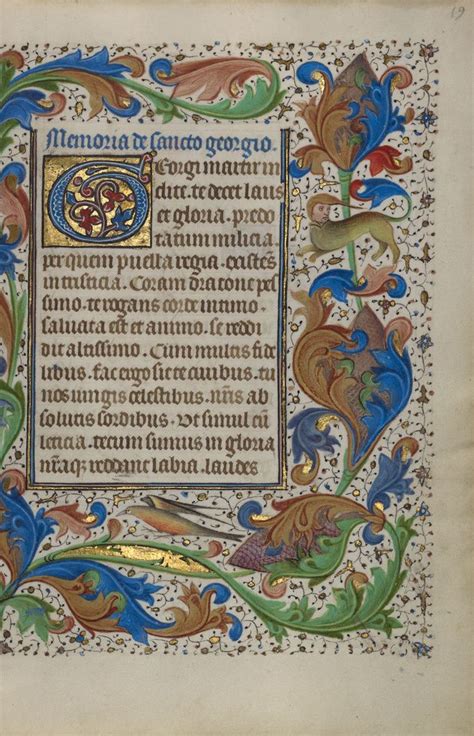 19
Memoria de sancto georgio.
Georgi martir in
clite. te decet laus
et gloria. predo
tatum milicia.
per quem puella regia. existēs
in tristicia. Coram dracone pes
simo. te rogans corde intimo.
saluata est et animo. se reddi
dit altissimo. Cum multis fide
libus. fac ergo sic te ciuibus. tu
nos iungis celestibus. nr̄is ab
solutis sordibus. Ut simul cū
leticia. tecum simus in gloria
nr̄aq; reddant labia. laudes